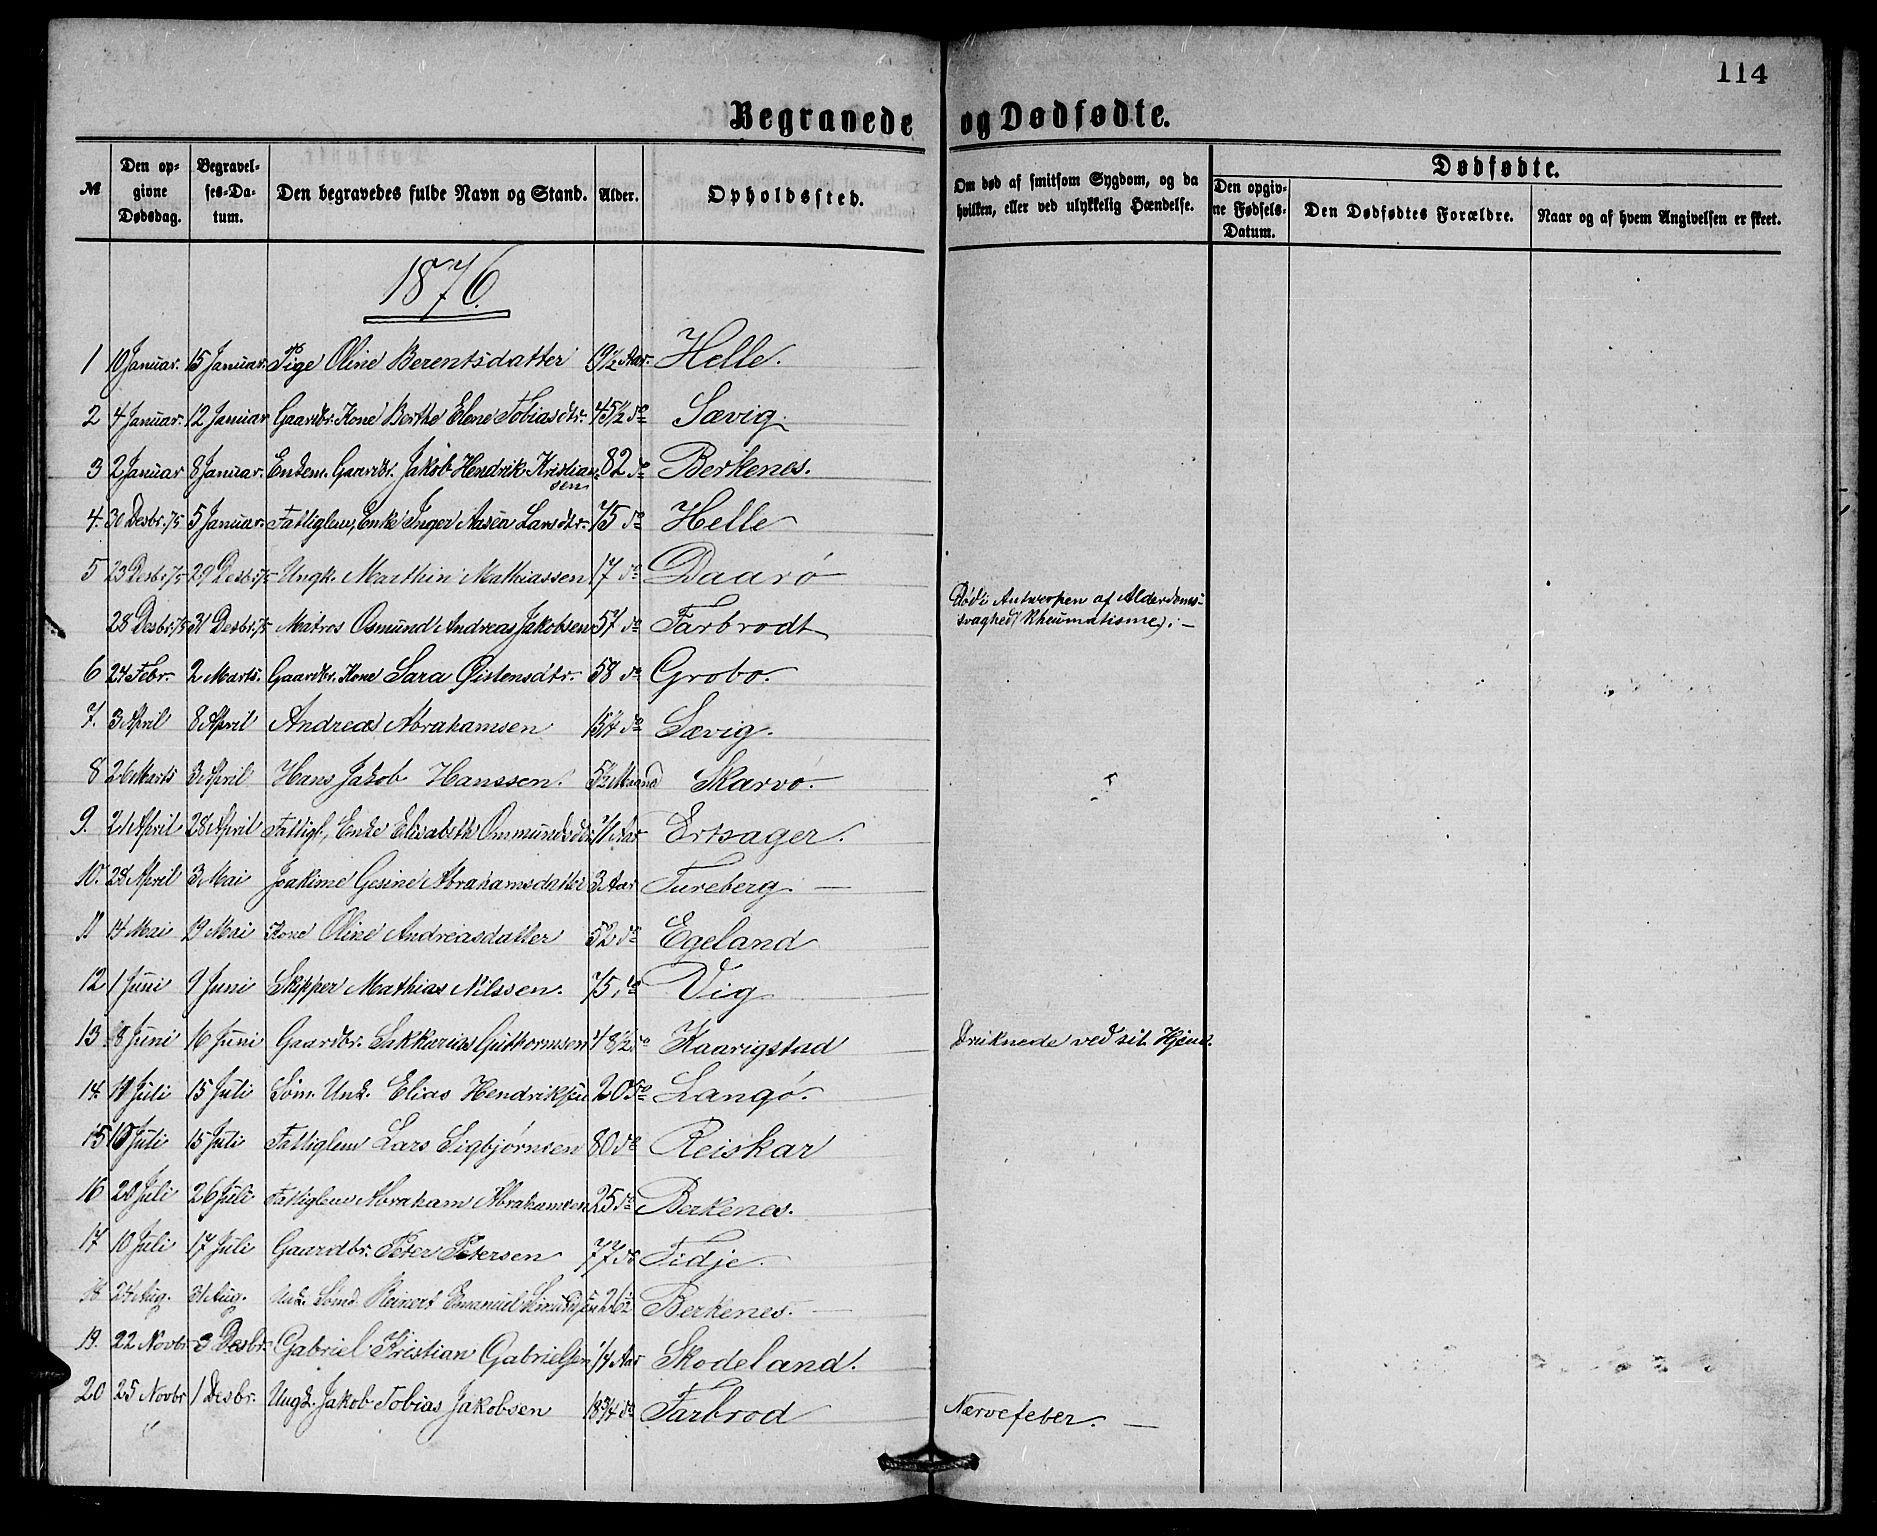 114
Begravede og Dødfødte.
№ | Den opgivne Dødsdag. | Begravelses-Datum. | Den begravedes fulde Navn og Stand. | Alder. | Opholdssted. | Om død af smitsom Sygdom, og da hvilken, eller ved ulykkelig Hændelse. | Dødfødte. | Den opgivne Fødsels-Datum. | Den Dødfødtes Forældre. | Naar og af hvem Angivelsen er skeet.
1876.
1 10 Januar. 15 Januar. Pige Oline Berentsdatter 19½ Aar. Helle.
2 4 Januar. 12 Januar Gaardbr. Kone Berthe Elene Tobiasdtr. 45½ do Sævig.
3 2 Januar 8 Januar. Enkem. Gaardbr. Jakob Hendrik Kristiansen 82 do Berkenes.
4. 30 Desbr. 75 5 Januar. Fattiglem, Enke Inger Aasen Larsdtr. 75 do Helle
5 23 Desbr. 75 29 Desbr. 75 Ungk. Marthin Mathiassen 17 do Daarø
28 Desbr. 75 31 Desbr. 75 Matros Osmund Andreas Jakobsen 57 do Farbrodt Død i Antwerpen af Alderdoms-
svaghed (Rheumatisme). —
6 24 Febr. 2 Marts. Gaardbr. Kone Sara Øistensdtr. 58 do Grobo.
7. 3 April 8 April Andreas Abrahamsen 15¼ do Sævig.
8 26 Marts 3 April Hans Jakob Hanssen. 5½ Maaned Skarvø.
9. 21 April 28 April Fattigl., Enke Elisabeth Ommundsdtr. 71 Aar Ertsager.
10. 28 April 3 Mai Joakime Gesine Abrahamsdatter 3 Aar Tureberg. —
11 14 Mai 19 Mai Kone Oline Andreasdatter 52 do Egeland
12 1 Juni 9 Juni Skipper Mathias Nilssen. 75 do Vig
13 8 Juni 16 Juni Gaardbr. Sakkarias Guttormsen 48½ do Kaarigstad Druknede ved sit Hjem.
14. 11 Juli 15 Juli Søm. Unk. Elias Hendriksen 20 do Langø.
15 10 Juli 15 Juli Fattiglem Lars Sigbjørnsen 80 do Reiskar
16 20 Juli 26 Juli Fattiglem Abraham Abrahamsen 25 do Berkenes.
17 10 Juli 17 Juli Gaardbr. Peter Petersen 77 do Tidje.
18. 24 Aug. 31 Aug. Unk. Sømd. Reinert Emanuel 26½ Berkenes. —
19. 22 Novbr. 3 Desbr. Gabriel Kristian Gabrielsen ¼ Aar Skodeland.
20 25 Novbr. 1 Desbr. Ungk. Jakob Tobias Jakobsen 18¾ do Farbrod Nervefeber. —